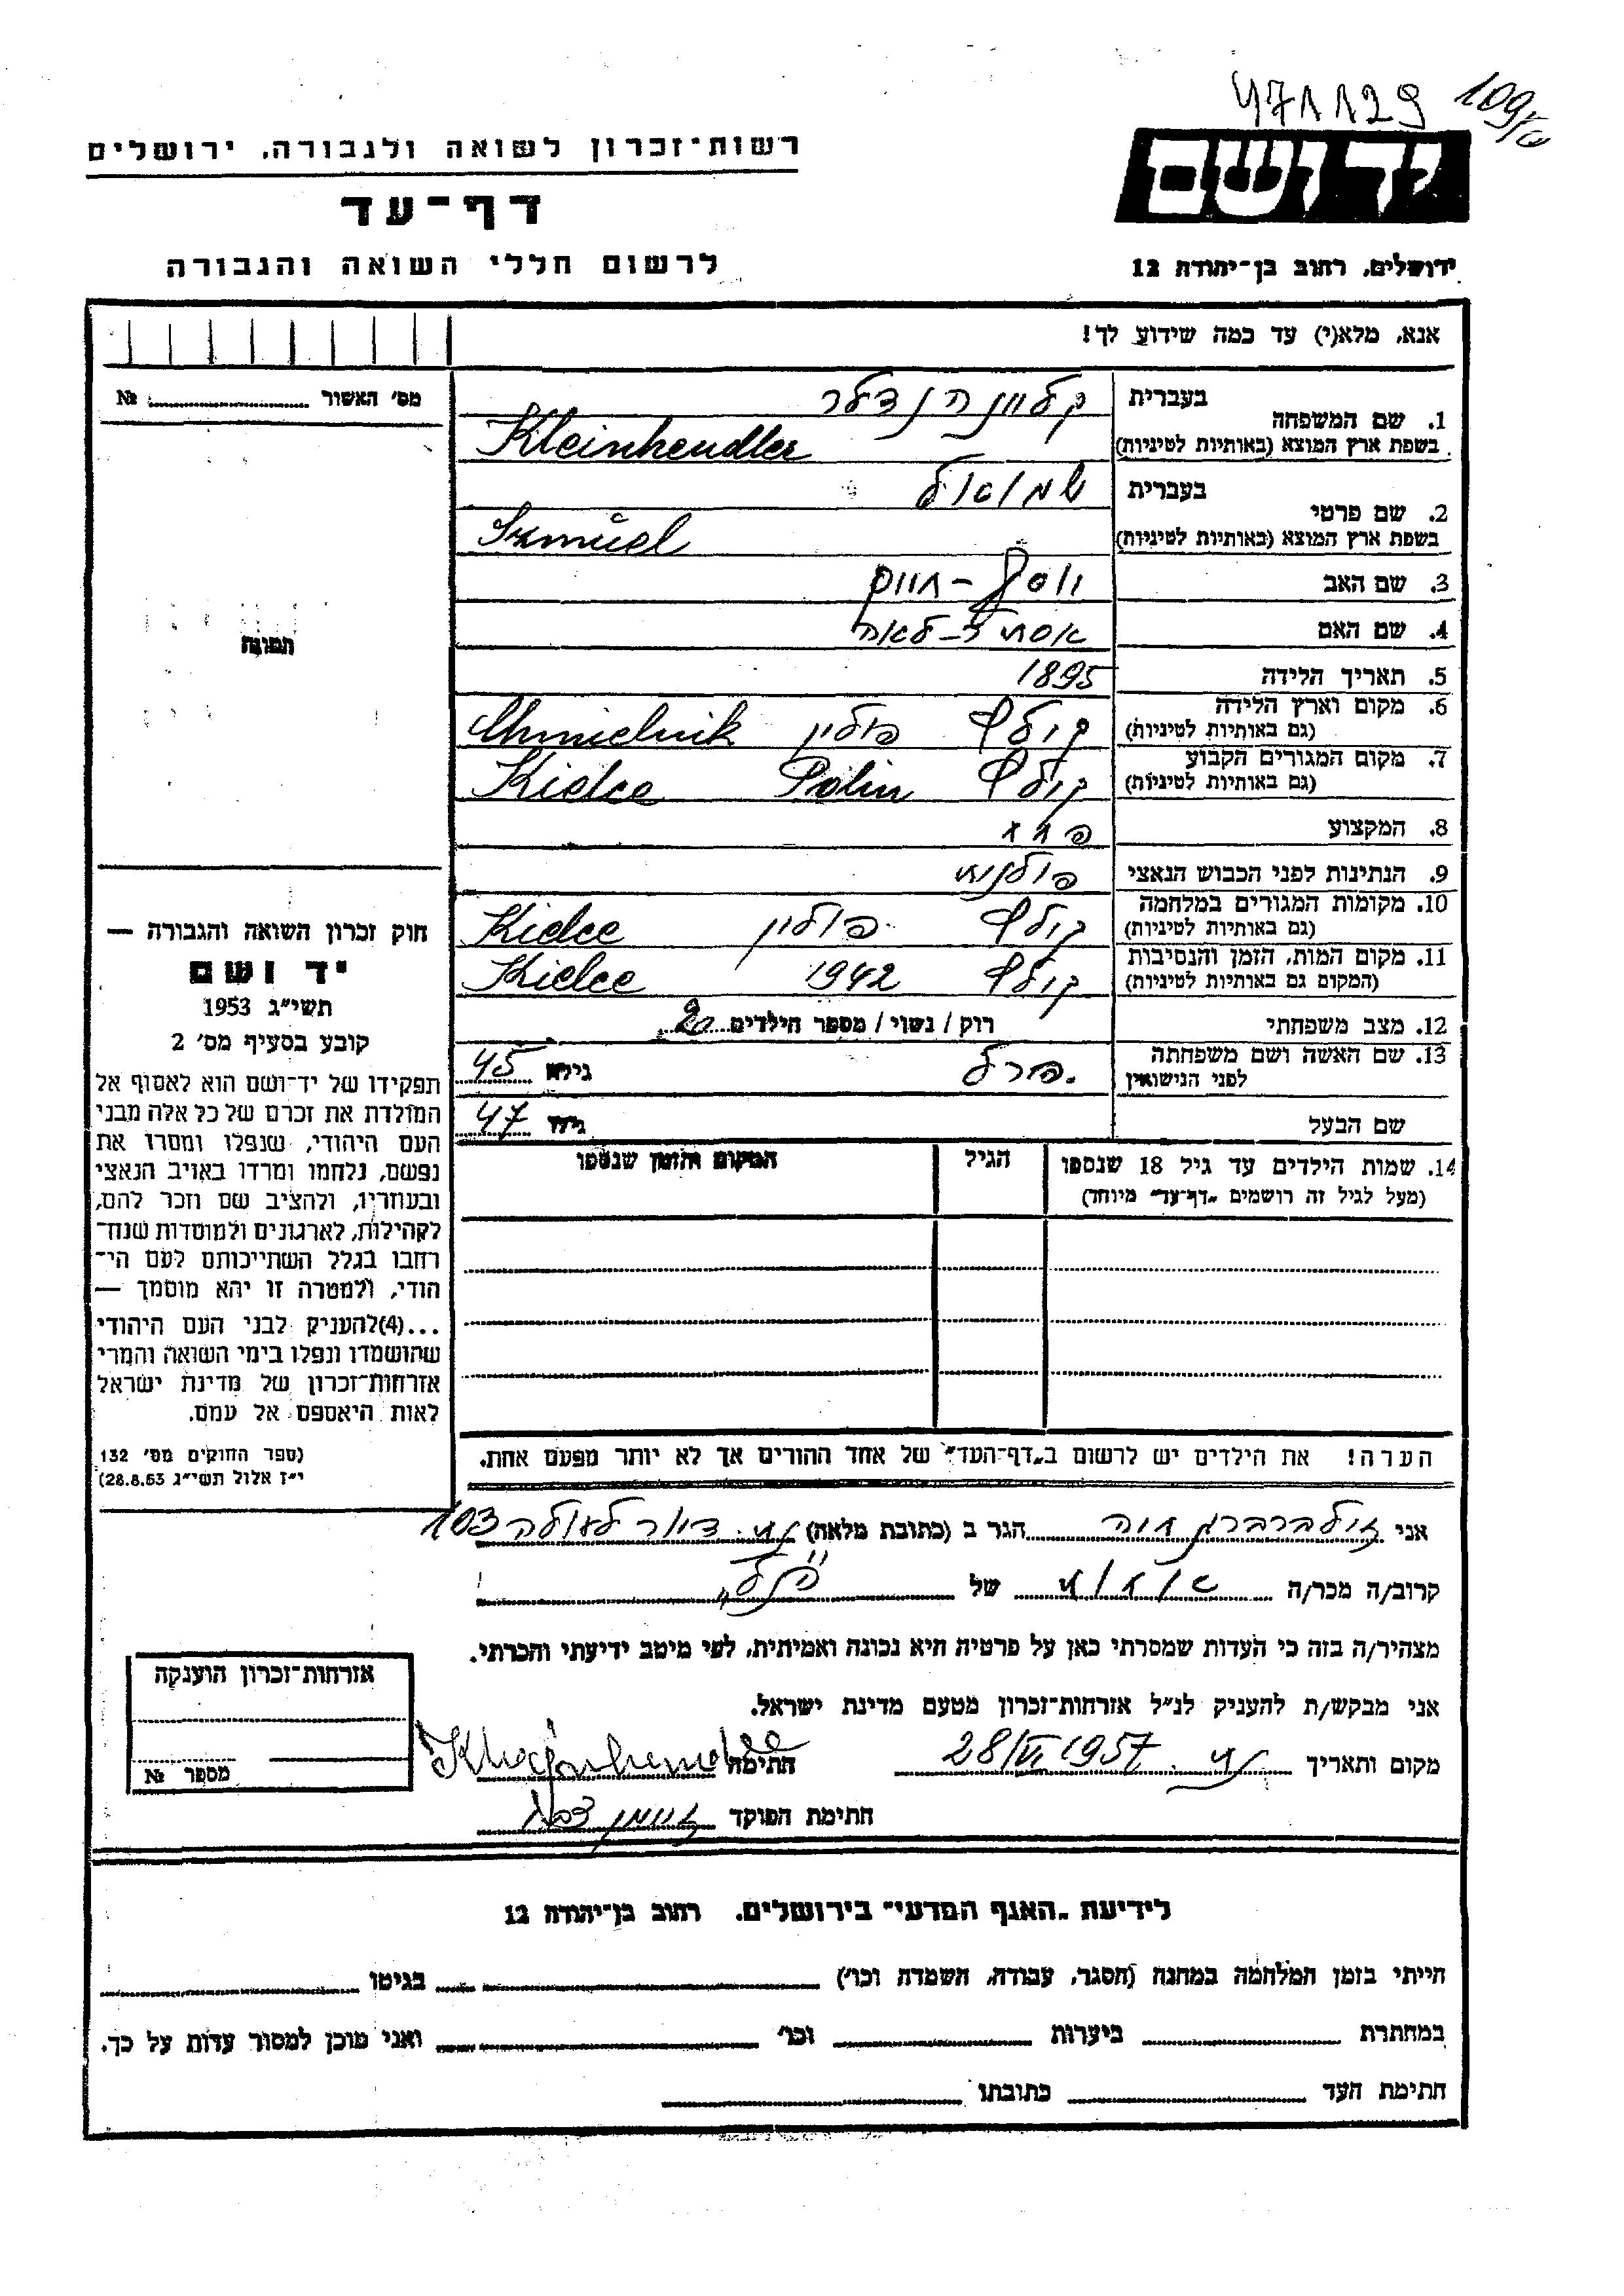 471129
רשות־זכרון לשואה ולגבורה, ירושלים
יד ושם
דף־עד
לרשום חללי השואה והגבורה
ירושלים, רחוב בן־יהודה 12
אנא, מלא(י) עד כמה שידוע לך!
מס׳ האשור № 
בעברית קליינהנדלר
1. שם המשפחה
בשפת ארץ המוצא (באותיות לטיניות) Kleinhendler
בעברית שמואל
2. שם פרטי
בשפת ארץ המוצא (באותיות לטיניות) Szmuel
3. שם האב יוסף – חיים
4. שם האם אסתר – לאה
תמונה
5. תאריך הלידה 1895
6. מקום וארץ הלידה (גם באותיות לטיניות) פולין Chmielnik
7. מקום המגורים הקבוע (גם באותיות לטיניות) Polin Kielce
8. המקצוע
9. הנתינות לפני הכבוש הנאצי פולנית
10. מקומות המגורים במלחמה (גם באותיות לטיניות) פולין Kielce
11. מקום המות, הזמן והנסיבות (המקום גם באותיות לטיניות) 1942 Kielce
12. מצב משפחתי רוק / נשוי / מספר הילדים
13. שם האשה ושם משפחתה לפני הנישואין פרל גילה 45
שם הבעל גילו 47
14. שמות הילדים עד גיל 18 שנספו הגיל המקום והזמן שנספו
(מעל לגיל זה רושמים „דף־עד״ מיוחד)
חוק זכרון השואה והגבורה —
יד ושם
תשי״ג 1953
קובע בסעיף מס׳ 2
תפקידו של יד־ושם הוא לאסוף אל
המולדת את זכרם של כל אלה מבני
העם היהודי, שנפלו ומסרו את
נפשם, נלחמו ומרדו באויב הנאצי
ובעוזריו, ולהציב שם וזכר להם,
לקהילות, לארגונים ולמוסדות שנח־
רבו בגלל השתייכותם לעם הי־
הודי, ולמטרה זו יהא מוסמך —
...(4) להעניק לבני העם היהודי
שהושמדו ונפלו בימי השואה והמרי
אזרחות־זכרון של מדינת ישראל
לאות היאספם אל עמם.
(ספר החוקים מס׳ 132
י״ז אלול תשי״ג 28.8.53)
הערה! את הילדים יש לרשום ב„דף־העד״ של אחד ההורים אך לא יותר מפעם אחת.
אני זילברברג חוה הגר ב (כתובת מלאה) 103
קרוב/ה מכר/ה של
מצהיר/ה בזה כי העדות שמסרתי כאן על פרטיה היא נכונה ואמיתית, לפי מיטב ידיעתי והכרתי.
אני מבקש/ת להעניק לנ״ל אזרחות־זכרון מטעם מדינת ישראל.
מקום ותאריך 28/VI 1957 חתימה
חתימת הפוקד
אזרחות־זכרון הוענקה
מספר №
לידיעת „האגף המדעי״ בירושלים, רחוב בן־יהודה 12
הייתי בזמן המלחמה במחנה (הסגר, עבודה, השמדה וכו׳) בגיטו
במחתרת ביערות וכו׳ ואני מוכן למסור עדות על כך.
חתימת העד כתובתו